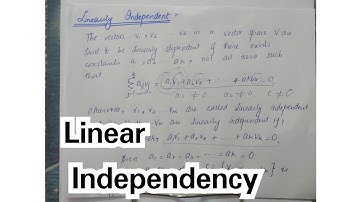 Linearly Independent :-
The vectors V₁, V₂ ... Vk in a vector space V are
said to be linearly dependent if there exists
constants a₁, a₂ ... ak not all zero such
that
∑ ajvj = a₁V₁ + a₂V₂ + ... + akVk = 0
a₁ ≠ 0 a₂ = 0
Otherwise, V₁, V₂, ... Vk are called linearly independent
Vk are linearly independent if,
a₁V₁ + a₂V₂ + ... + akVk = 0
Linear
a₁ = a₂ = a₃ = ... = ak = 0
Independency